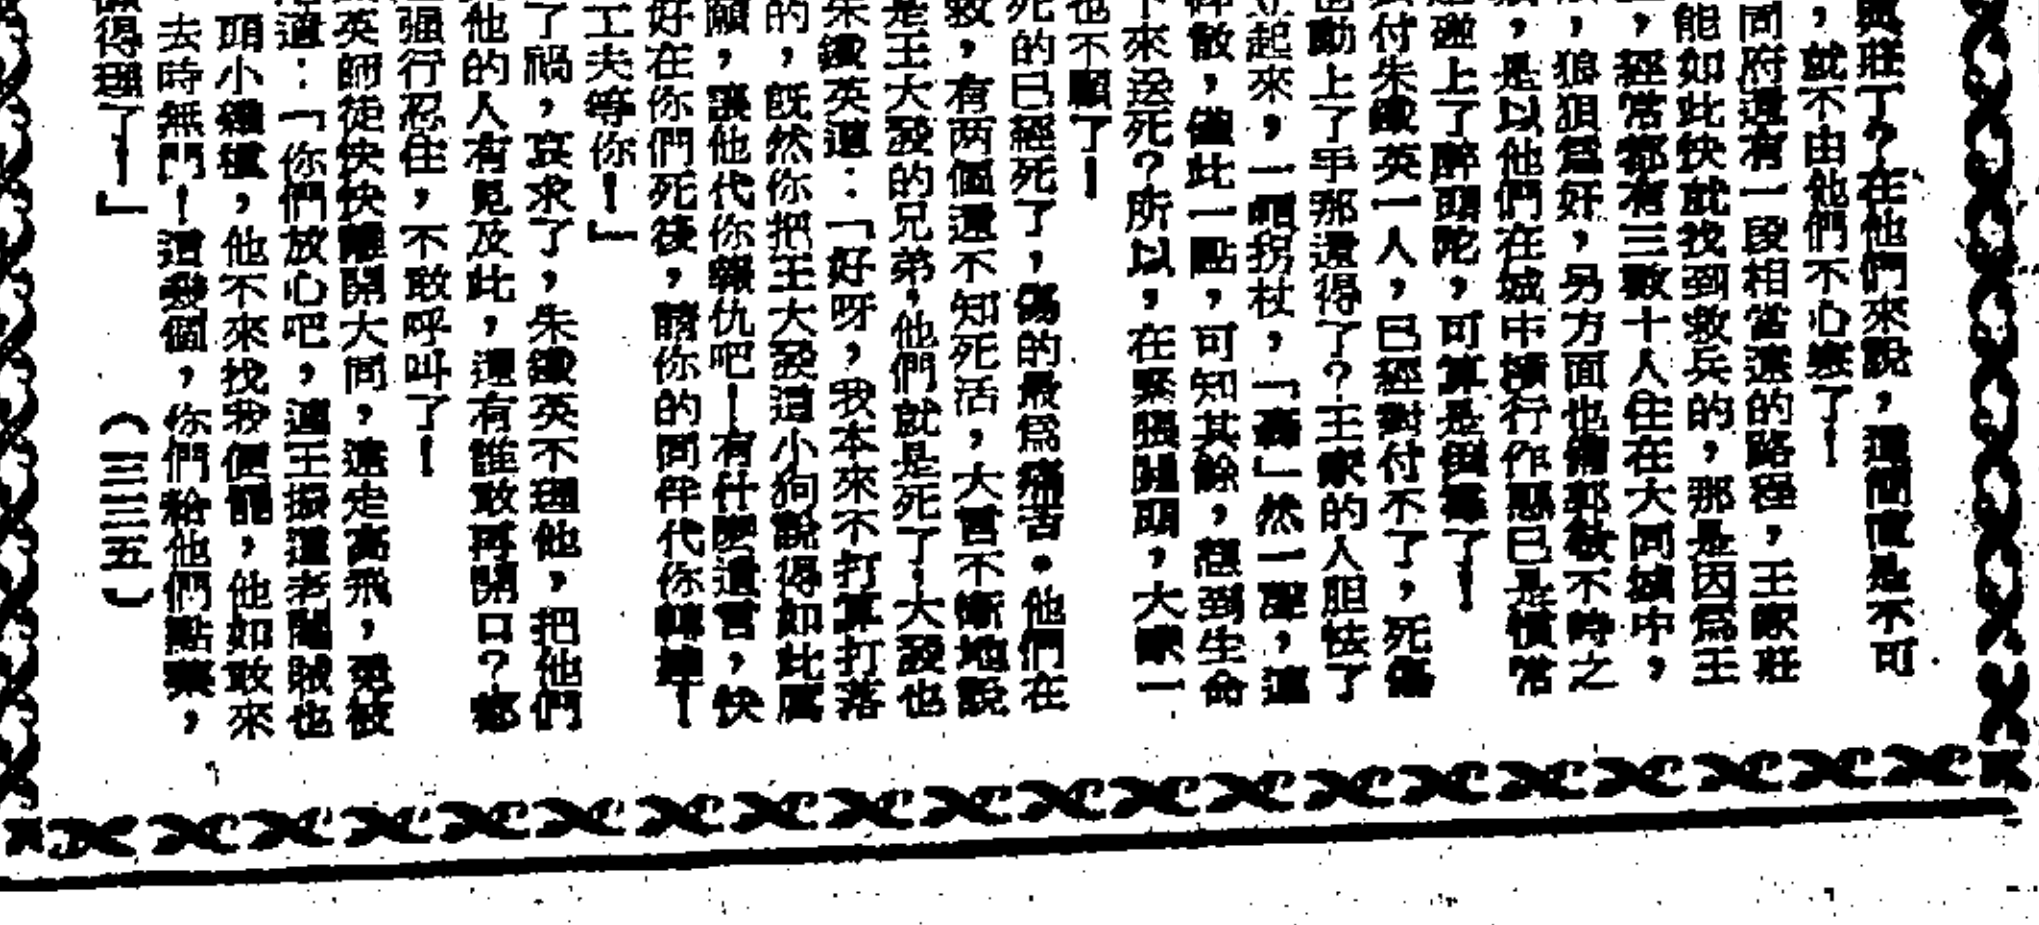 與莊了？在他們來說，這簡直是不可
，就不由他們不心寒了！
同府還有一段相當遠的路程，王家莊
能如此快就找到救兵的，那是因為王
，經常都有三數十人住在大同城中，
，狼狽為奸，另方面也備郭敬不時之
，是以他們在城中橫行作惡已是慣常
碰上了醉頭陀，可算是倒霉了！
付朱鐵英一人，已經對付不了，死傷
動上了手那還得了？王家的人胆怯了
起來，一頓拐杖，「轟」然一聲，這
碎散，僅此一點，可知其餘，想到生命
下來送死？所以，在緊張關頭，大家一
也不顧了！
死的已經死了，傷的最為痛苦。他們在
救，有两個還不知死活，大言不慚地說
是王大發的兄弟，他們就是死了，大發也
朱鐵英道：「好呀，我本來不打算打落
的，既然你把王大發這小狗說得如此厲
願，讓他代你報仇吧！有什麼遺言，快
好在你們死後，請你的同伴代你轉達！
工夫等你！」
了禍，哀求了，朱鐵英不理他，把他們
他的人有見及此，還有誰敢再開口？都
强行忍住，不敢呼叫了！
英師徒快快離開大同，遠走高飛，免被
道：「你們放心吧，連王振這老閹賊也
頭小雜種，他不來找我便罷，他如敢來
去時無門！這幾個，你們給他們點藥，
得理了！」
（三三五）